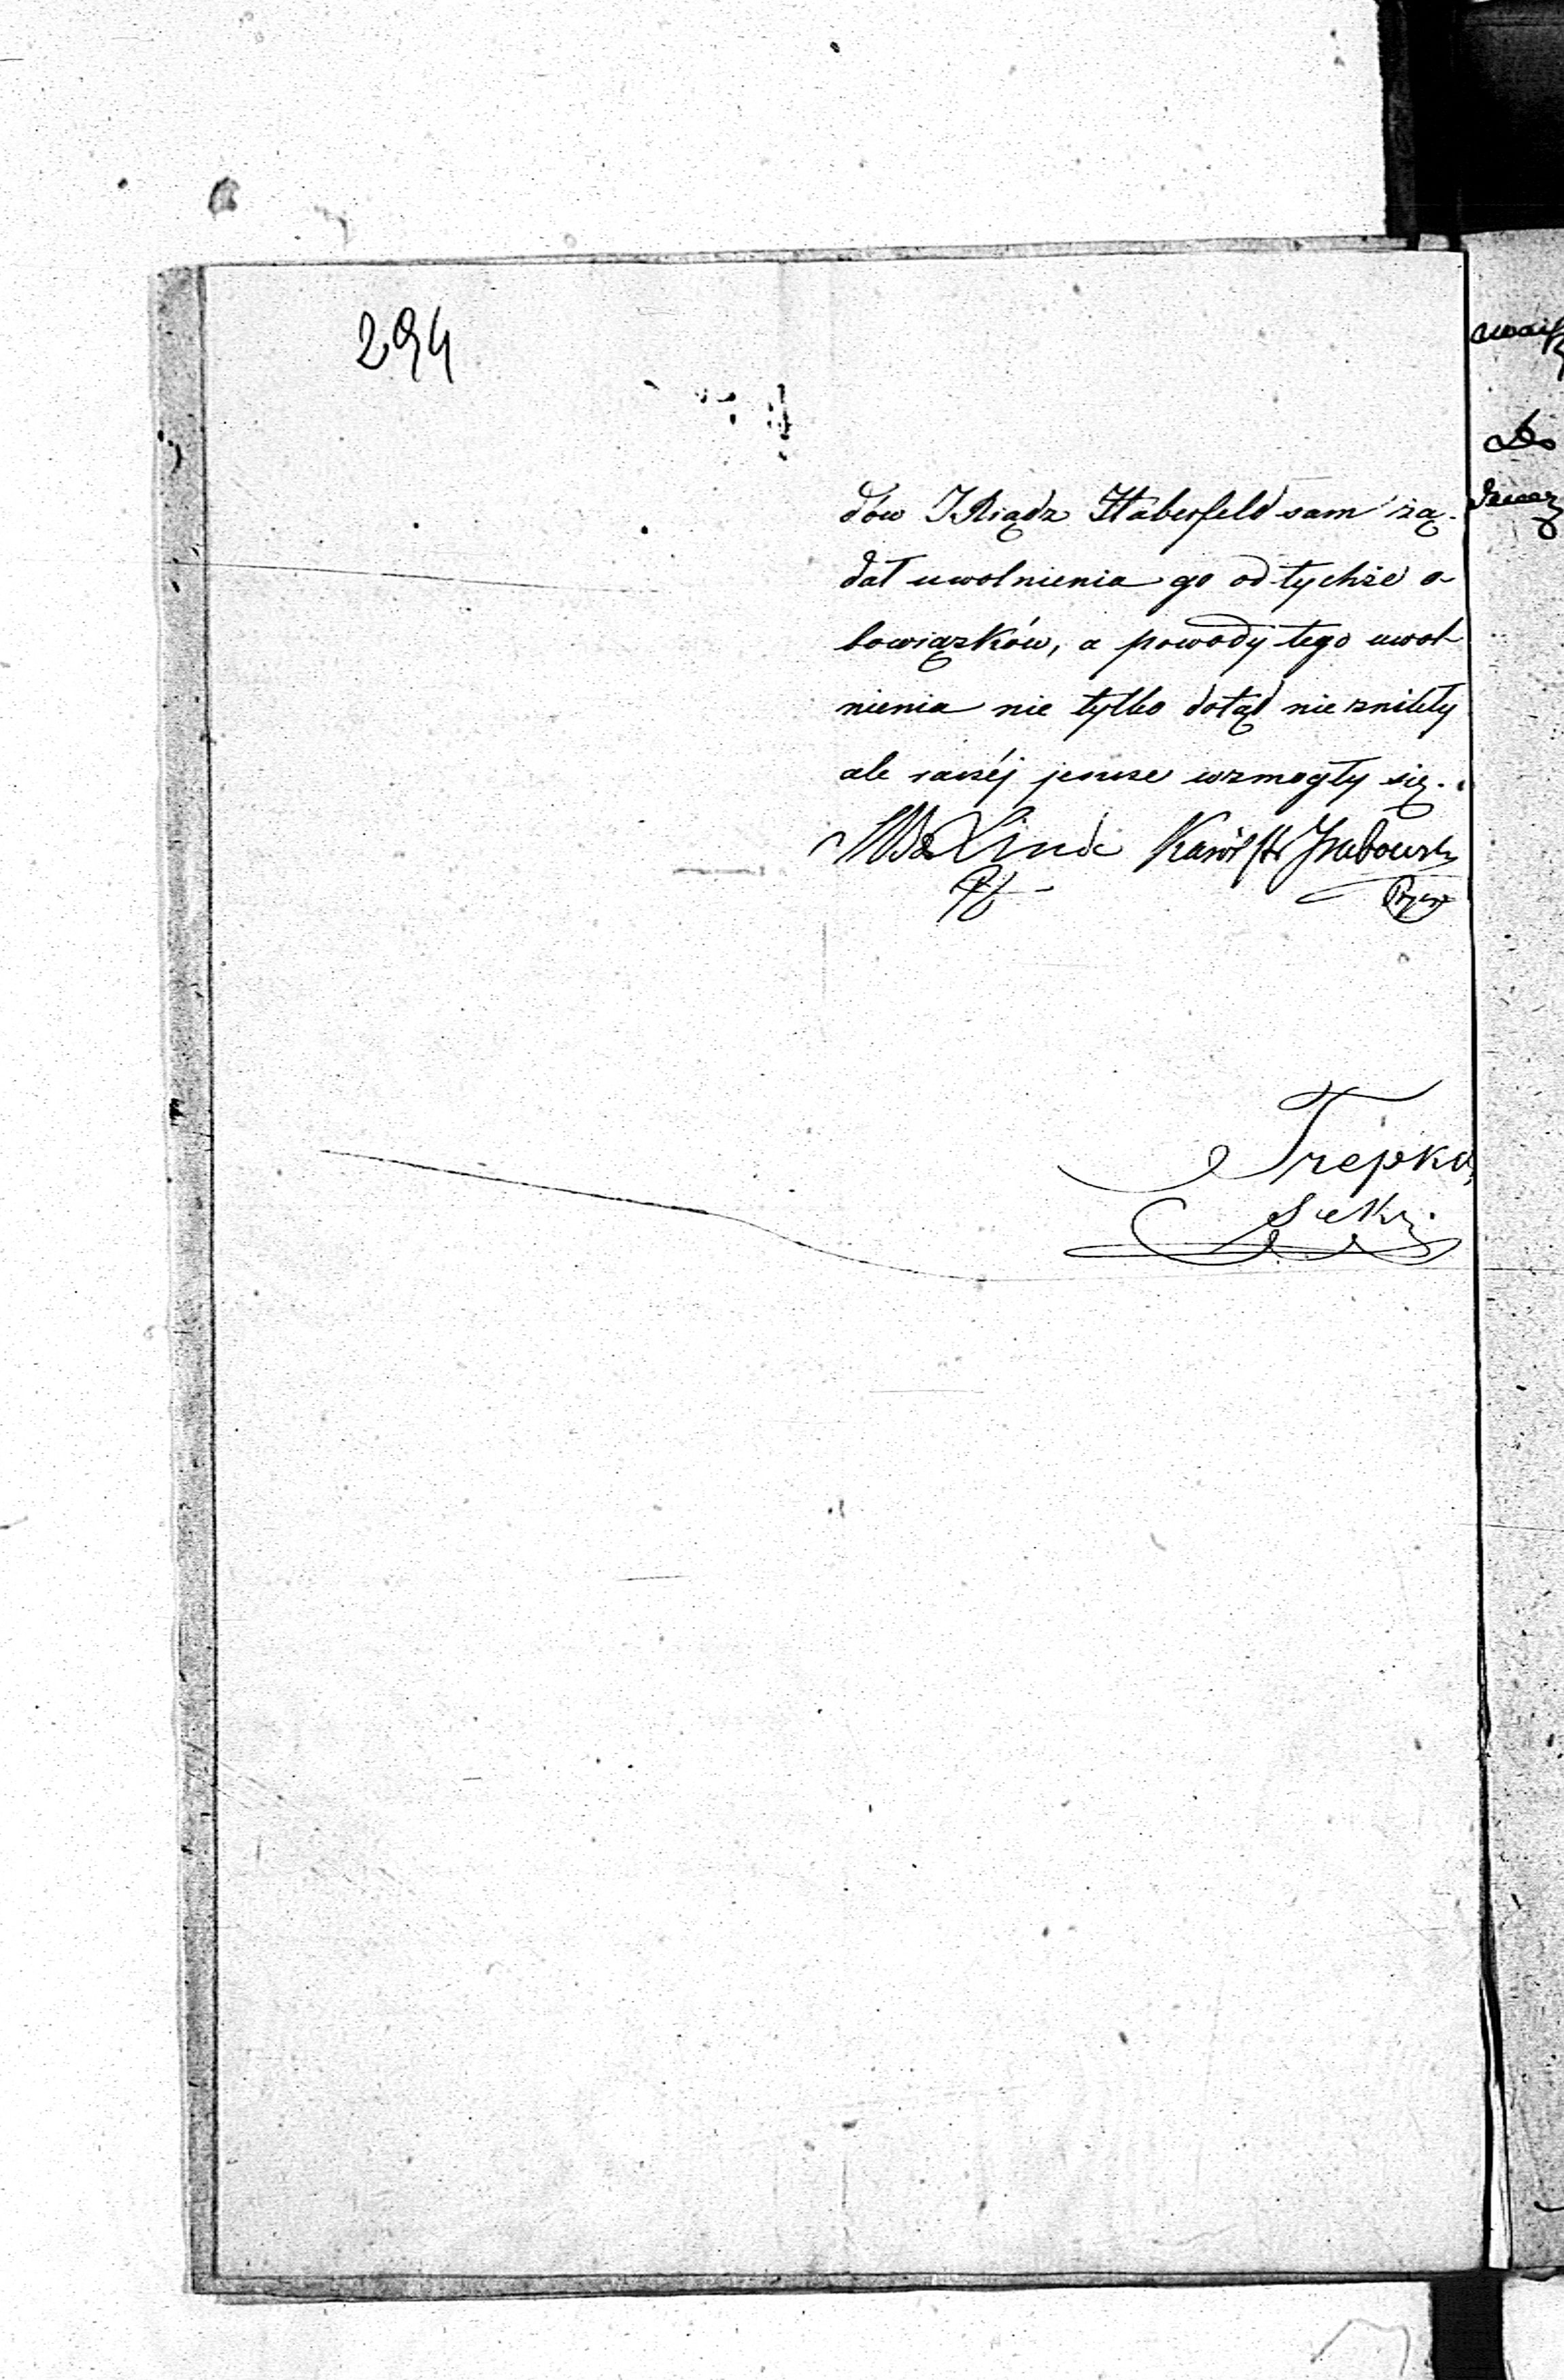 294
dów JXiądz Haberfeld sam żą-
dał uwolnienia go od tychże o-
bowiązków, a powody tego uwol
nienia nie tylko dotąd nie znikły
ale raczéj jeszcze wzmogły się.
Linde Karól Hr Grabowski
Prezes
Trepka
Sekr.